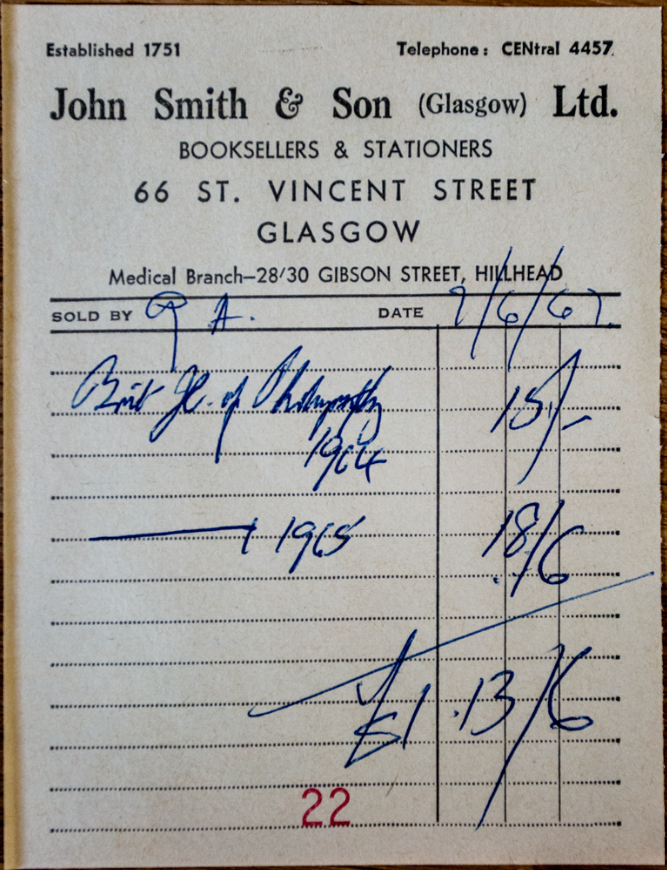 Established 1751 Telephone: CENtral 4457.
John Smith & Son (Glasgow) Ltd.
BOOKSELLERS & STATIONERS
66 ST. VINCENT STREET
GLASGOW
Medical Branch—28/30 GIBSON STREET, HILLHEAD
SOLD BY A. DATE 7/6/67.
Brit Jl. of Photography 15/-
1964
1965 18/6
£1.13/6
22